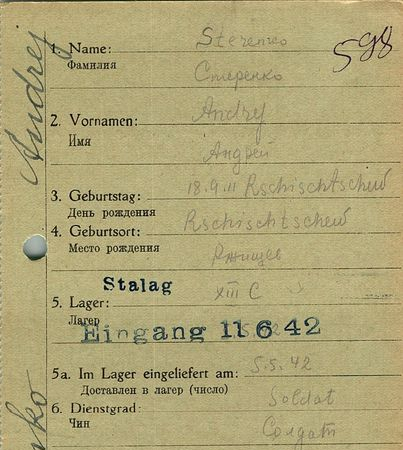 1. Name: Sterenko
Фамилия Стеренко
598
2. Vornamen: Andrej
Имя Андрей
3. Geburtstag: 18.9.11 Rschischtschew
День рождения
4. Geburtsort: Rschischtschew
Место рождения Ржищев
Stalag
5. Lager: XIII C
Лагерь
Eingang 11 6 42
5a. Im Lager eingeliefert am: 5.5.42
Доставлен в лагерь (число)
6. Dienstgrad: Soldat
Чин Солдат
Andrej
nko